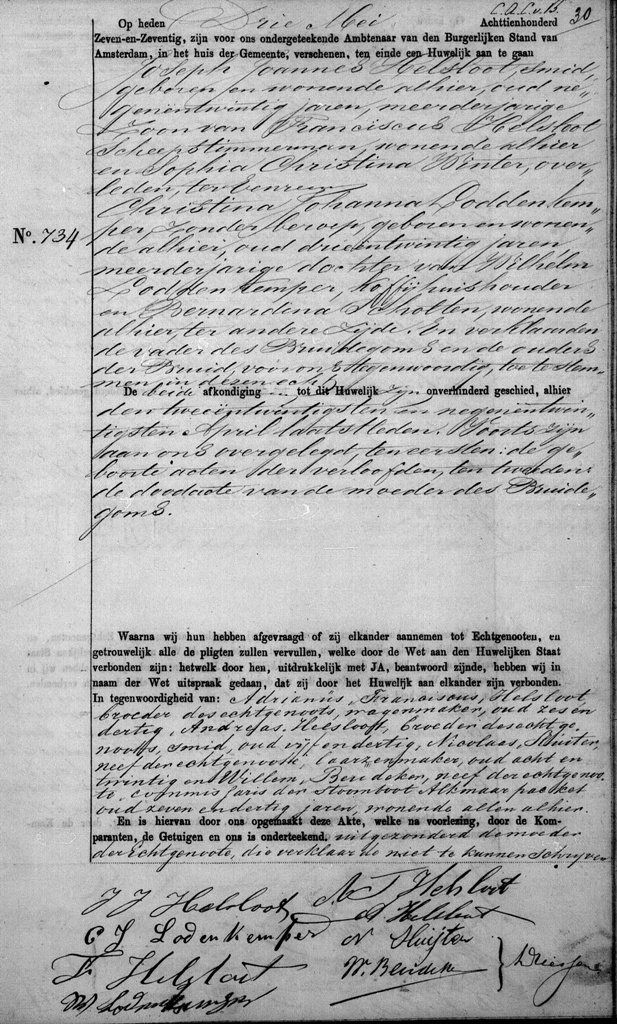 C.A.C.v.B. 30
Op heden Drie Mei Achttienhonderd
Zeven-en-Zeventig, zijn voor ons ondergeteekende Ambtenaar van den Burgerlijken Stand van
Amsterdam, in het huis der Gemeente, verschenen, ten einde een Huwelijk aan te gaan
Joseph Joannes Helsloot, smid,
geboren en wonende alhier, oud ne-
genentwintig jaren, meerderjarige
Zoon van Franciscus Helsloot
Scheepstimmerman, wonende alhier
en Sophia Christina Winter, over-
leden, ter eenre en
Christina Johanna Loddenkem-
per, zonder beroep, geboren en wonen-
No. 734 de alhier, oud drieëntwintig jaren
meerderjarige dochter van Wilhelm
Loddenkemper, koffijhuishouder
en Bernardina Scholten, wonende
alhier, ter andere zijde. En verklaarden
de vader des Bruidegoms en de ouders
der Bruid, voor ons tegenwoordig, toe te stem-
men in dezen echt.
De beide afkondiging tot dit Huwelijk zijn onverhinderd geschied, alhier
den tweeëntwintigsten en negenentwin-
tigsten April laatstleden. Voorts zijn
aan ons overgelegd, ten eersten: de ge-
boorte acten der verloofden, ten tweeden:
de doodacte van de moeder des Bruide-
goms.
Waarna wij hun hebben afgevraagd of zij elkander aannemen tot Echtgenooten, en
getrouwelijk alle de pligten zullen vervullen, welke door de Wet aan den Huwelijken Staat
verbonden zijn: hetwelk door hen, uitdrukkelijk met JA, beantwoord zijnde, hebben wij in
naam der Wet uitspraak gedaan, dat zij door het Huwelijk aan elkander zijn verbonden.
In tegenwoordigheid van: Adrianus Franciscus Helsloot,
broeder des echtgenoots, wagenmaker, oud zes en
dertig, Andreas Helsloot, broeder des echtge-
noots, smid, oud vijf en dertig, Nicolaas Sluiter,
neef der echtgenoote, laarzenmaker, oud acht en
twintig en Willem Beudeker, neef der echtgenoo-
te, commissaris der Stoomboot Alkmaar packet
oud zeven en dertig jaren, wonende allen alhier.
En is hiervan door ons opgemaakt deze Akte, welke na voorlezing, door de Kom-
paranten, de Getuigen en ons is onderteekend, uitgezonderd de moeder
der echtgenoote, die verklaarde niet te kunnen schrijven
J J Helsloot A F Helsloot
C J Lodenkemper A Helsloot
F Helsloot N Sluijter
W Lodenkemper W. Beudeker